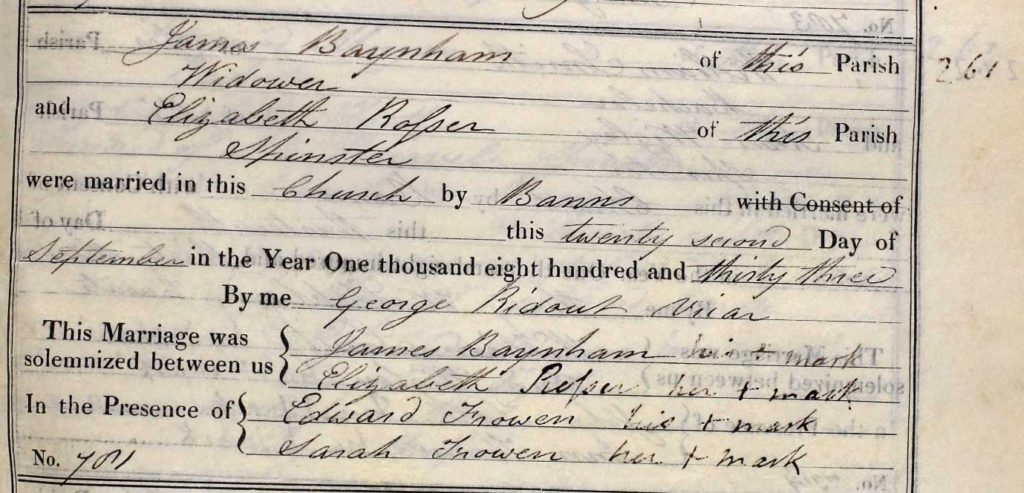 James Baynham of this Parish
Widower
and Elizabeth Roſser of this Parish
Spinster
were married in this Church by Banns with Consent of
this twenty second Day of
September in the Year One thousand eight hundred and thirty three
By me George Ridout Vicar
This Marriage was solemnized between us { James Baynham his + mark
Elizabeth Roſser her + mark
In the Presence of { Edward Frowen his + mark
Sarah Frowen her + mark
No. 781
261